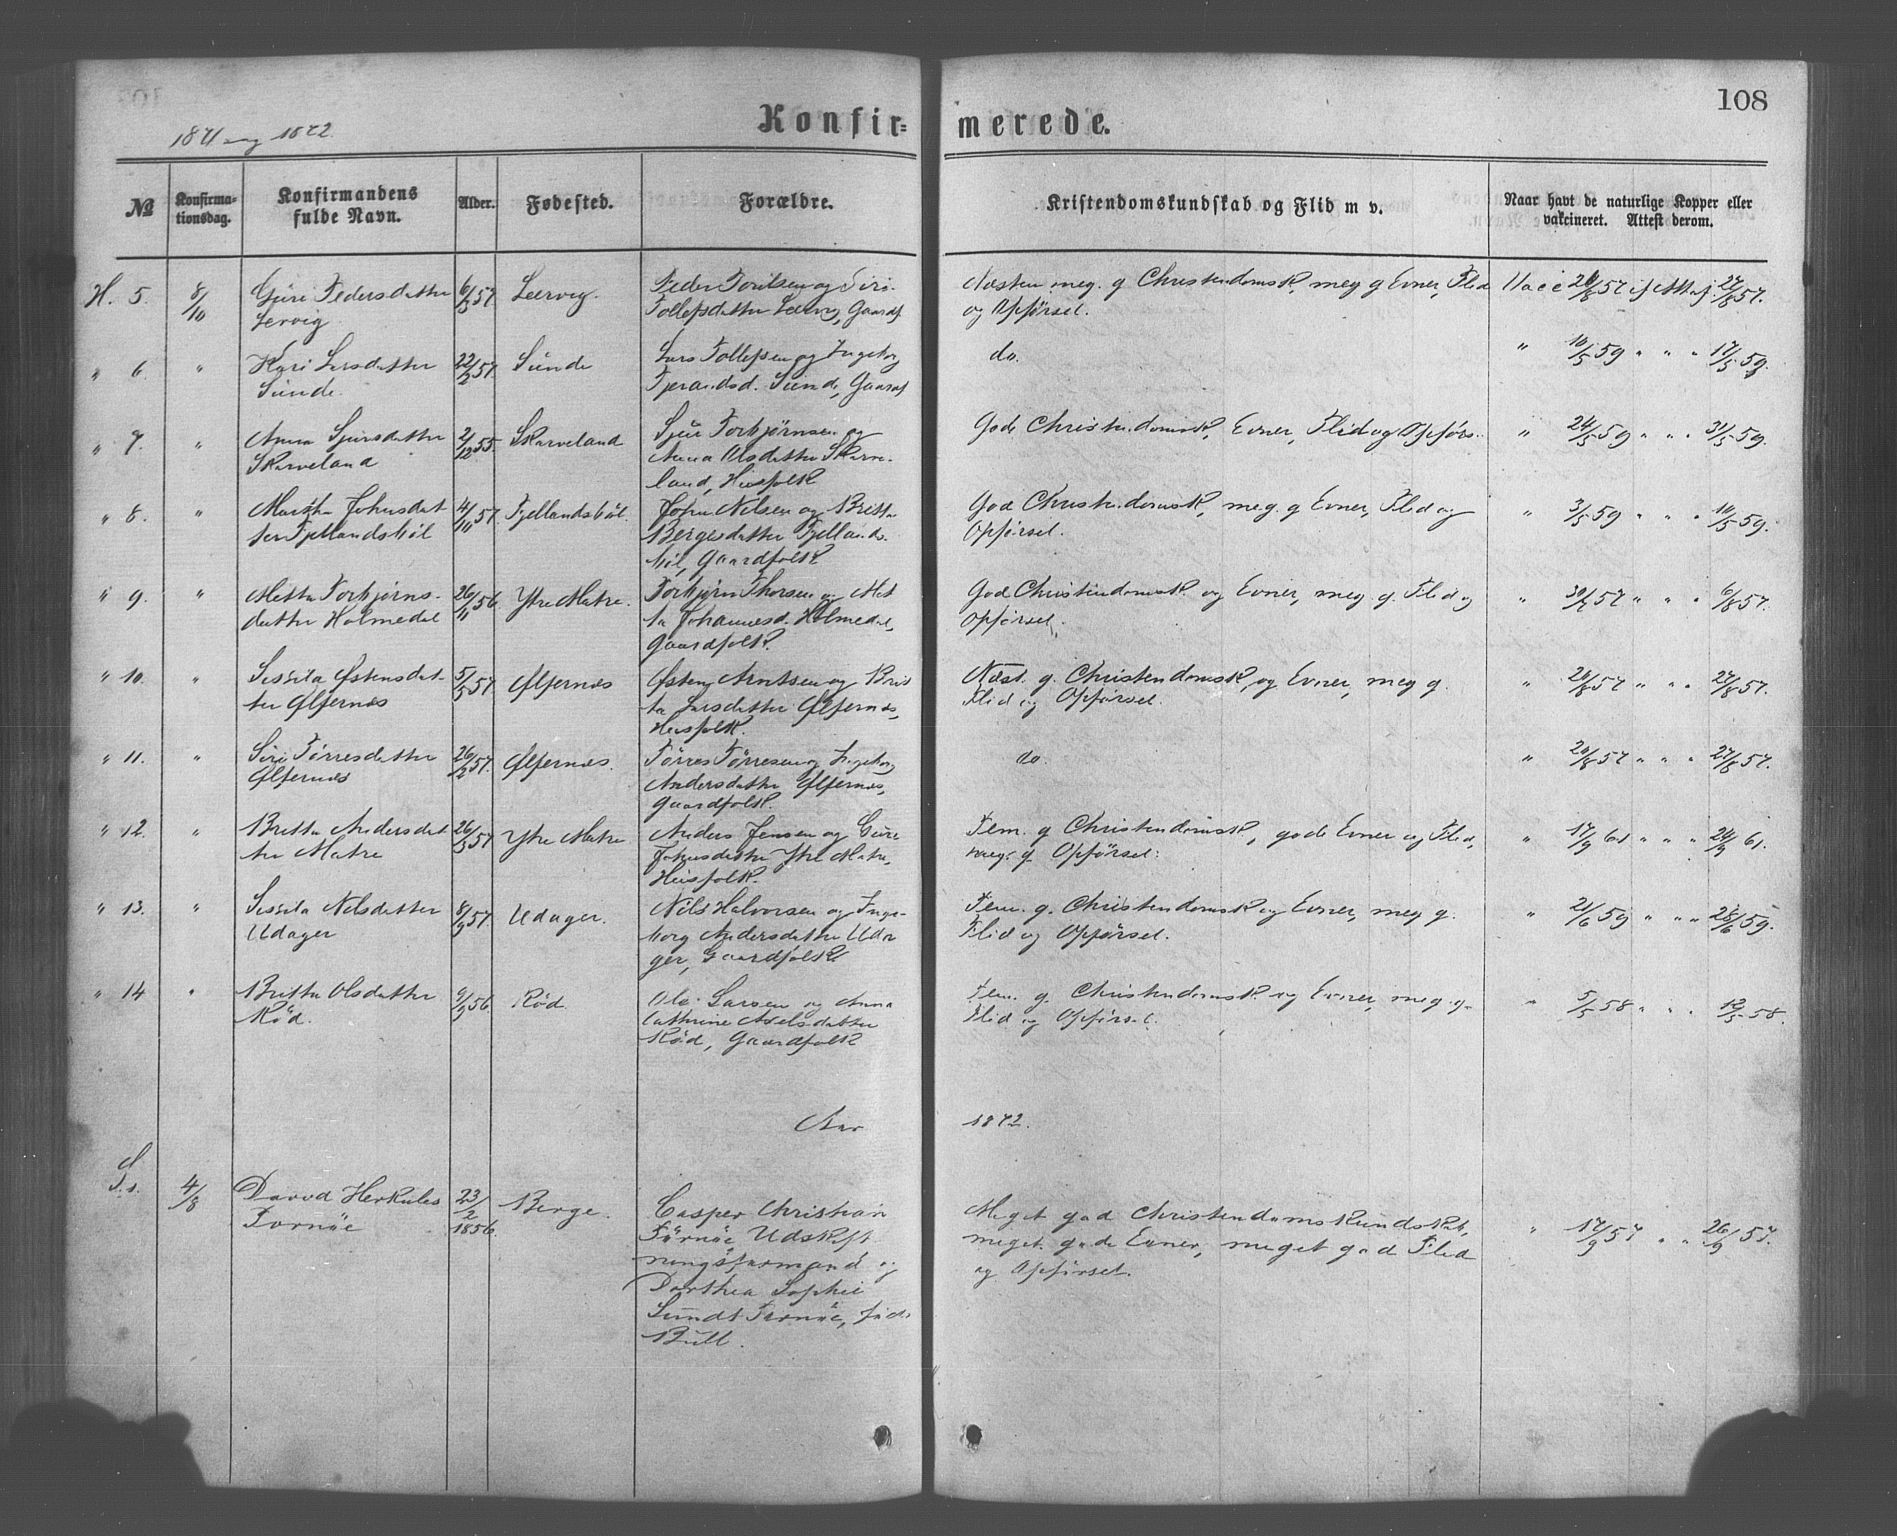 108
1871 og 1872.
Konfir=
merede.
No
Konfirma=
tionsdag.
Konfirmandens
fulde Navn.
Alder.
Fødested.
Forældre.
Kristendomskundskab og Flid m v.
Naar havt de naturlige Kopper eller
vakcineret. Attest derom.
H. 5. 8/10 Guri Pedersdatter 6/3 57 Leervig. Peder Toreilsen og Siri Næsten meg. g Christendomsk, meg g Evner, Flid Vacc 20/8 57 if Att. af 27/8 57.
Lervig Tollefsdatter Leervig, Gaardf og Opførsel.
" 6. " Kari Larsdatter 22/2 57. Sunde Lars Tollefsen og Ingeborg do. " 10/5 59 " " " 17/5 59.
Sunde. Tjerandsd. Sunde, Gaardf
" 7. " Anna Sjursdatter 2/12 55. Skarveland Sjur Torbjørnsen og Gode Christendomsk, Evner, Flid og Opførs. " 24/5 59 " " " 31/5 59.
Skarveland Anna Olsdatter Skarve-
land, Husfolk
" 8. " Martha Johnsdat 4/11 57. Fjellandsbøl. John Nilsen og Britta God Christendomsk, meg. g Evner, Flid og " 3/5 59 " " " 10/5 59.
ter Fjellandsbøl Bergesdatter Fjellands- Opførsel.
bøl, Gaardfolk
" 9. " Metta Torbjørns- 26/11 56 Ytre Matre. Torbjørn Thorsen og Met God Christendomsk. og Evner, meg. g. Flid og " 30/7 57 " " " 6/8 57.
datter Holmedal ta Johannesd. Holmedal, Opførsel.
Gaardfolk.
" 10. " Sessela Østensdat- 5/5 57 Ølfernæs Østen Arntsen og Brit Næst. g. Christendomsk, og Evner, meg g. " 20/8 57 " " " 27/8 57.
ter Ølfernæs ta Larsdatter Ølfernæs, Flid og Opførsel.
Husfolk.
" 11. " Siri Tørresdatter 26/2 57. Ølfernæs. Tørres Tørresen og Ingeborg do. " 20/8 57 " " " 27/8 57.
Ølfernæs Andersdatter Ølfernæs,
Gaardfolk.
" 12. " Britta Andersdat 26/5 57 Ytre Matre Anders Jensen og Guri Tem. g. Christendomsk, gode Evner og Flid, " 17/9 61 " " " 24/9 61.
ter Matre Johnsdatter Ytre Matre, meg. g Opførsel.
Husfolk.
" 13. " Sessela Nilsdatter 8/9 57. Udager. Nils Halvorsen og Inge- Tem. g. Christendomsk og Evner, meg g. " 21/6 59 " " " 28/6 59.
Udager borg Andersdatter Uda Flid og Opførsel.
ger, Gaardfolk
" 14 " Britta Olsdatter 9/9 56. Rød. Ole Larsen og Anna Tem. g. Christendomsk og Evner, meg. g. " 5/5 58 " " " 12/5 58.
Rød. Cathrine Axelsdatter Flid og Opførsel.
Rød, Gaardfolk
Aar 1872.
4/8 David Herkules 23/2 1856. Berge. Casper Christian Meget god Christendomskundskab, " 17/9 57 " " 26/9 57.
Tornöe Törnöe Udskift meget gode Evner, meget god Flid
ningsformand og og Opførsel.
Dorthea Sophie
Sundt Tornöe, født
Bull.